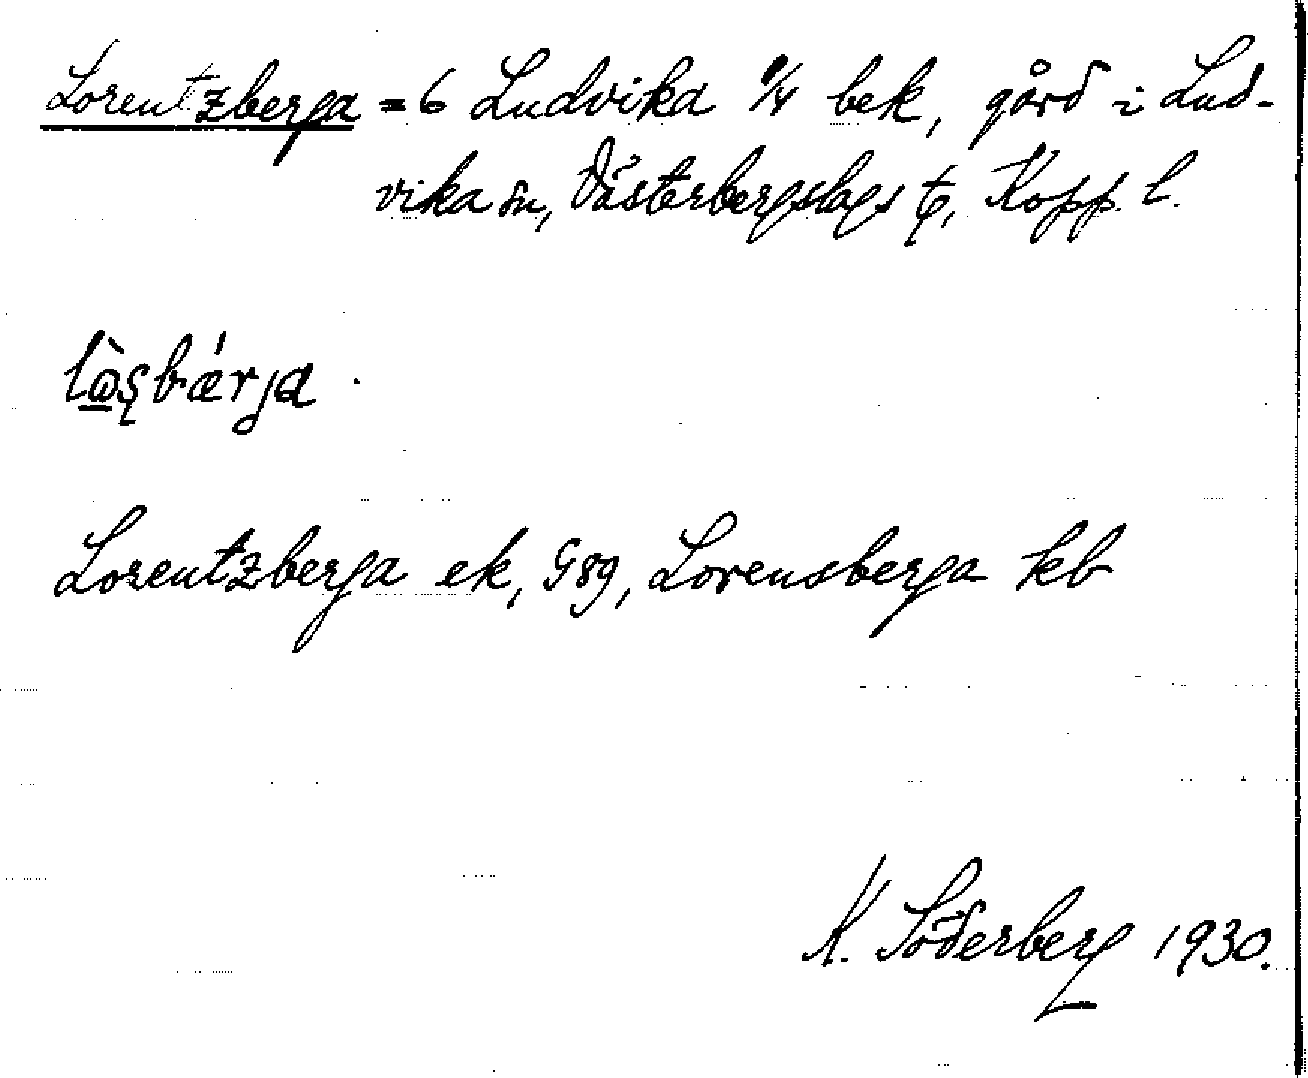 Lorentzberga = 6 Ludvika 1/4 bek, gård i Lud-
vika sn, Västerbergslags tg, Kopp. l.
Lorentzberga ek, G89, Lorensberga kb
K. Söderberg 1930.